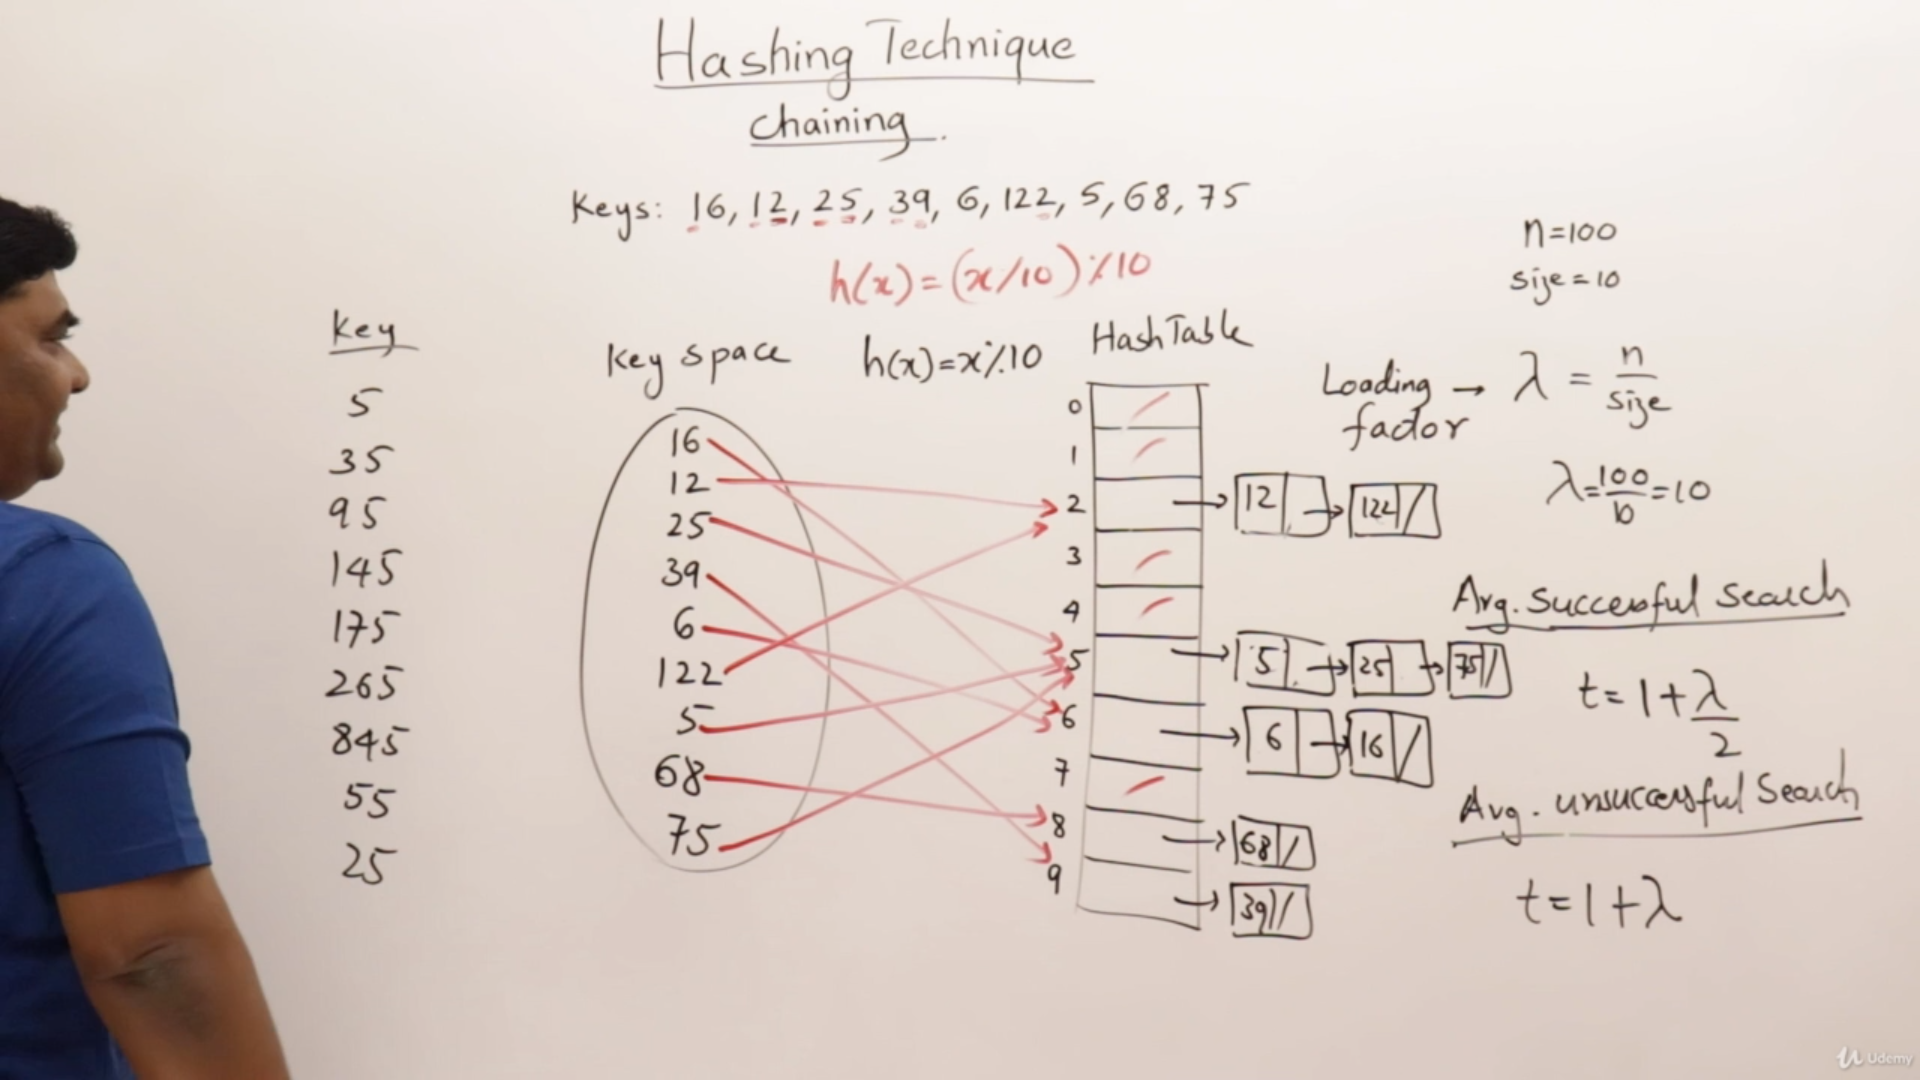 Hashing Technique
chaining
Keys: 16, 12, 25, 39, 6, 122, 5, 68, 75
h(x) = (x/10) % 10
n=100
size = 10
Key
5
35
95
145
175
265
845
55
25
Key space
16
12
25
39
6
122
5
68
75
h(x)=x%10
HashTable
0
1
2 12 122
3
4
5 5 25 75
6 6 16
7
8 68
9 39
Loading factor → λ = n/size
λ=100/10=10
Avg. Successful Search
t= 1+λ/2
Avg. unsuccessful Search
t=1+λ
Udemy